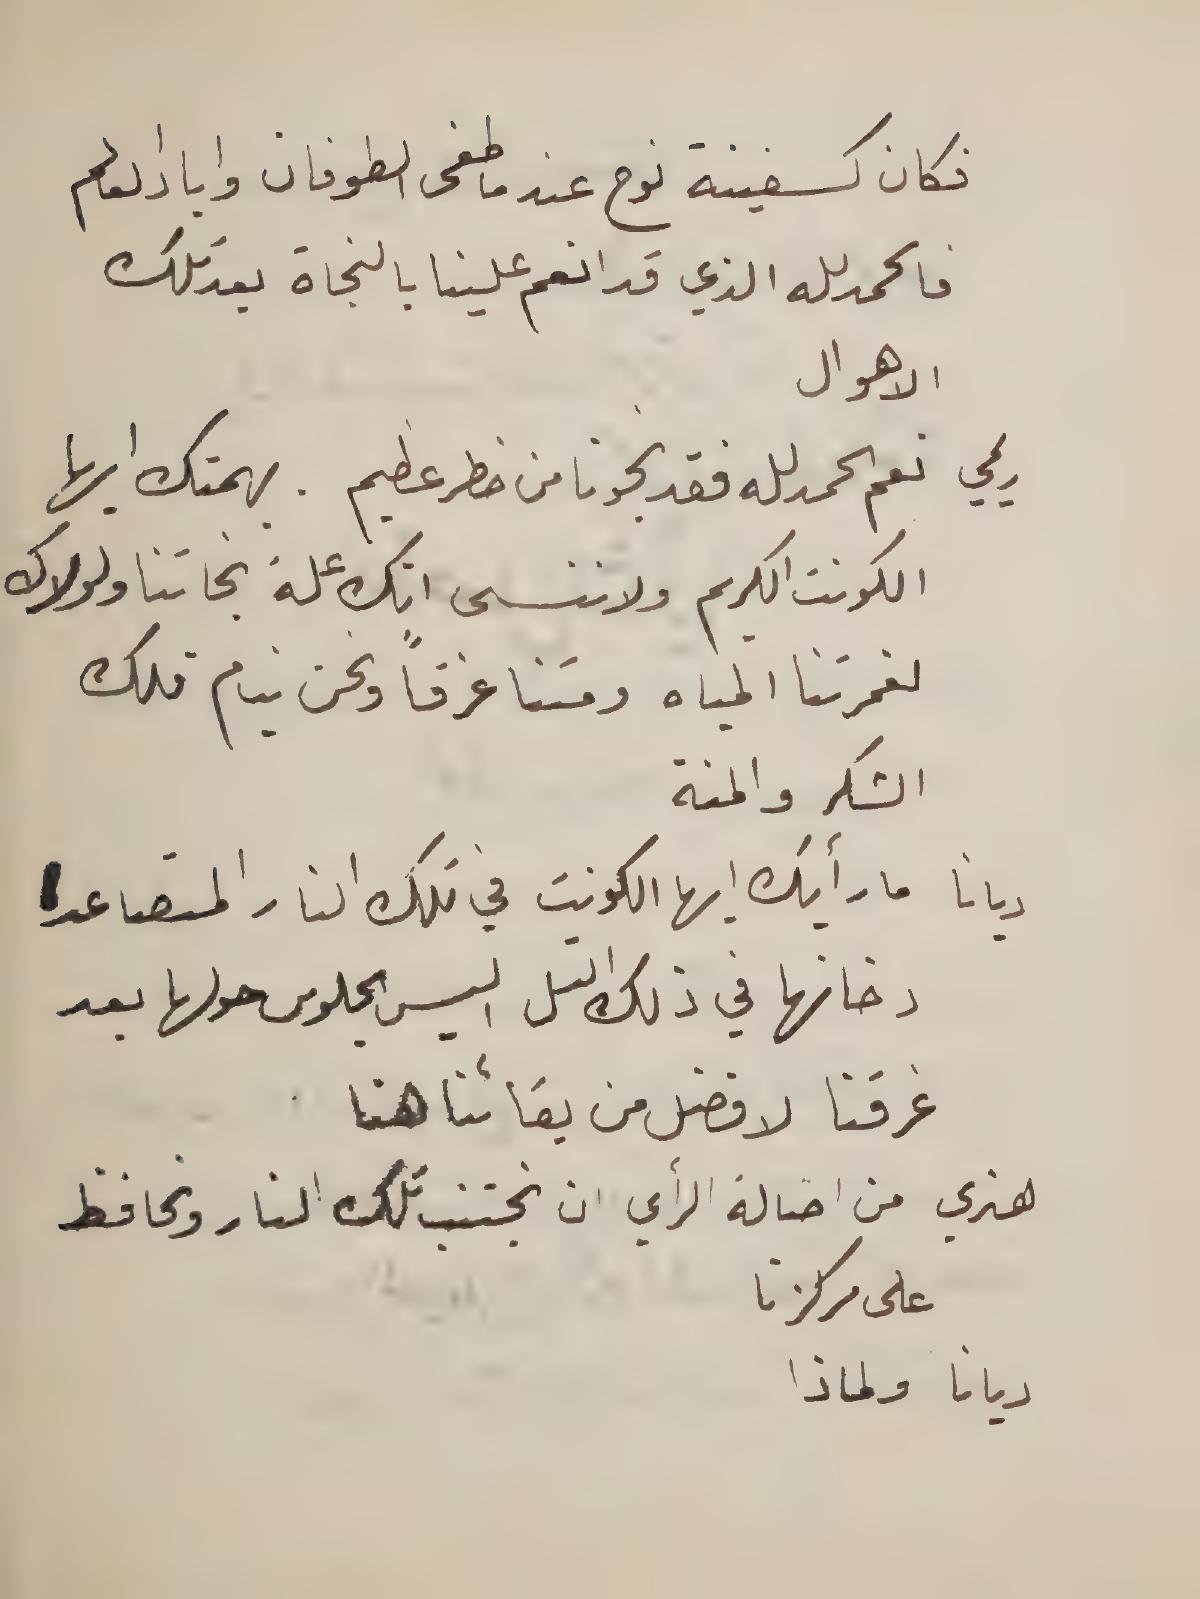 فكان كسفينة نوح عندما طغى الطوفان واباد العالم
فالحمد لله الذي قد انعم علينا بالنجاة بعد تلك
الاهوال
رمي نعم الحمد لله فقد نجونا من خطر عظيم . بهمتك ايها
الكونت الكريم ولا ننسى انك علة نجاتنا ولولاك
لغمرتنا المياه ومتنا غرقاً ونحن نيام فلك
الشكر والمنة
ديانا ما رأيك ايها الكونت في تلك النار المتصاعد
دخانها في ذلك التل اليس الجلوس حولها بعد
غرقنا لافضل من بقائنا هنا
هنري من اصالة الرأي ان نجتنب تلك النار ونحافظ
على مركزنا
ديانا ولماذا